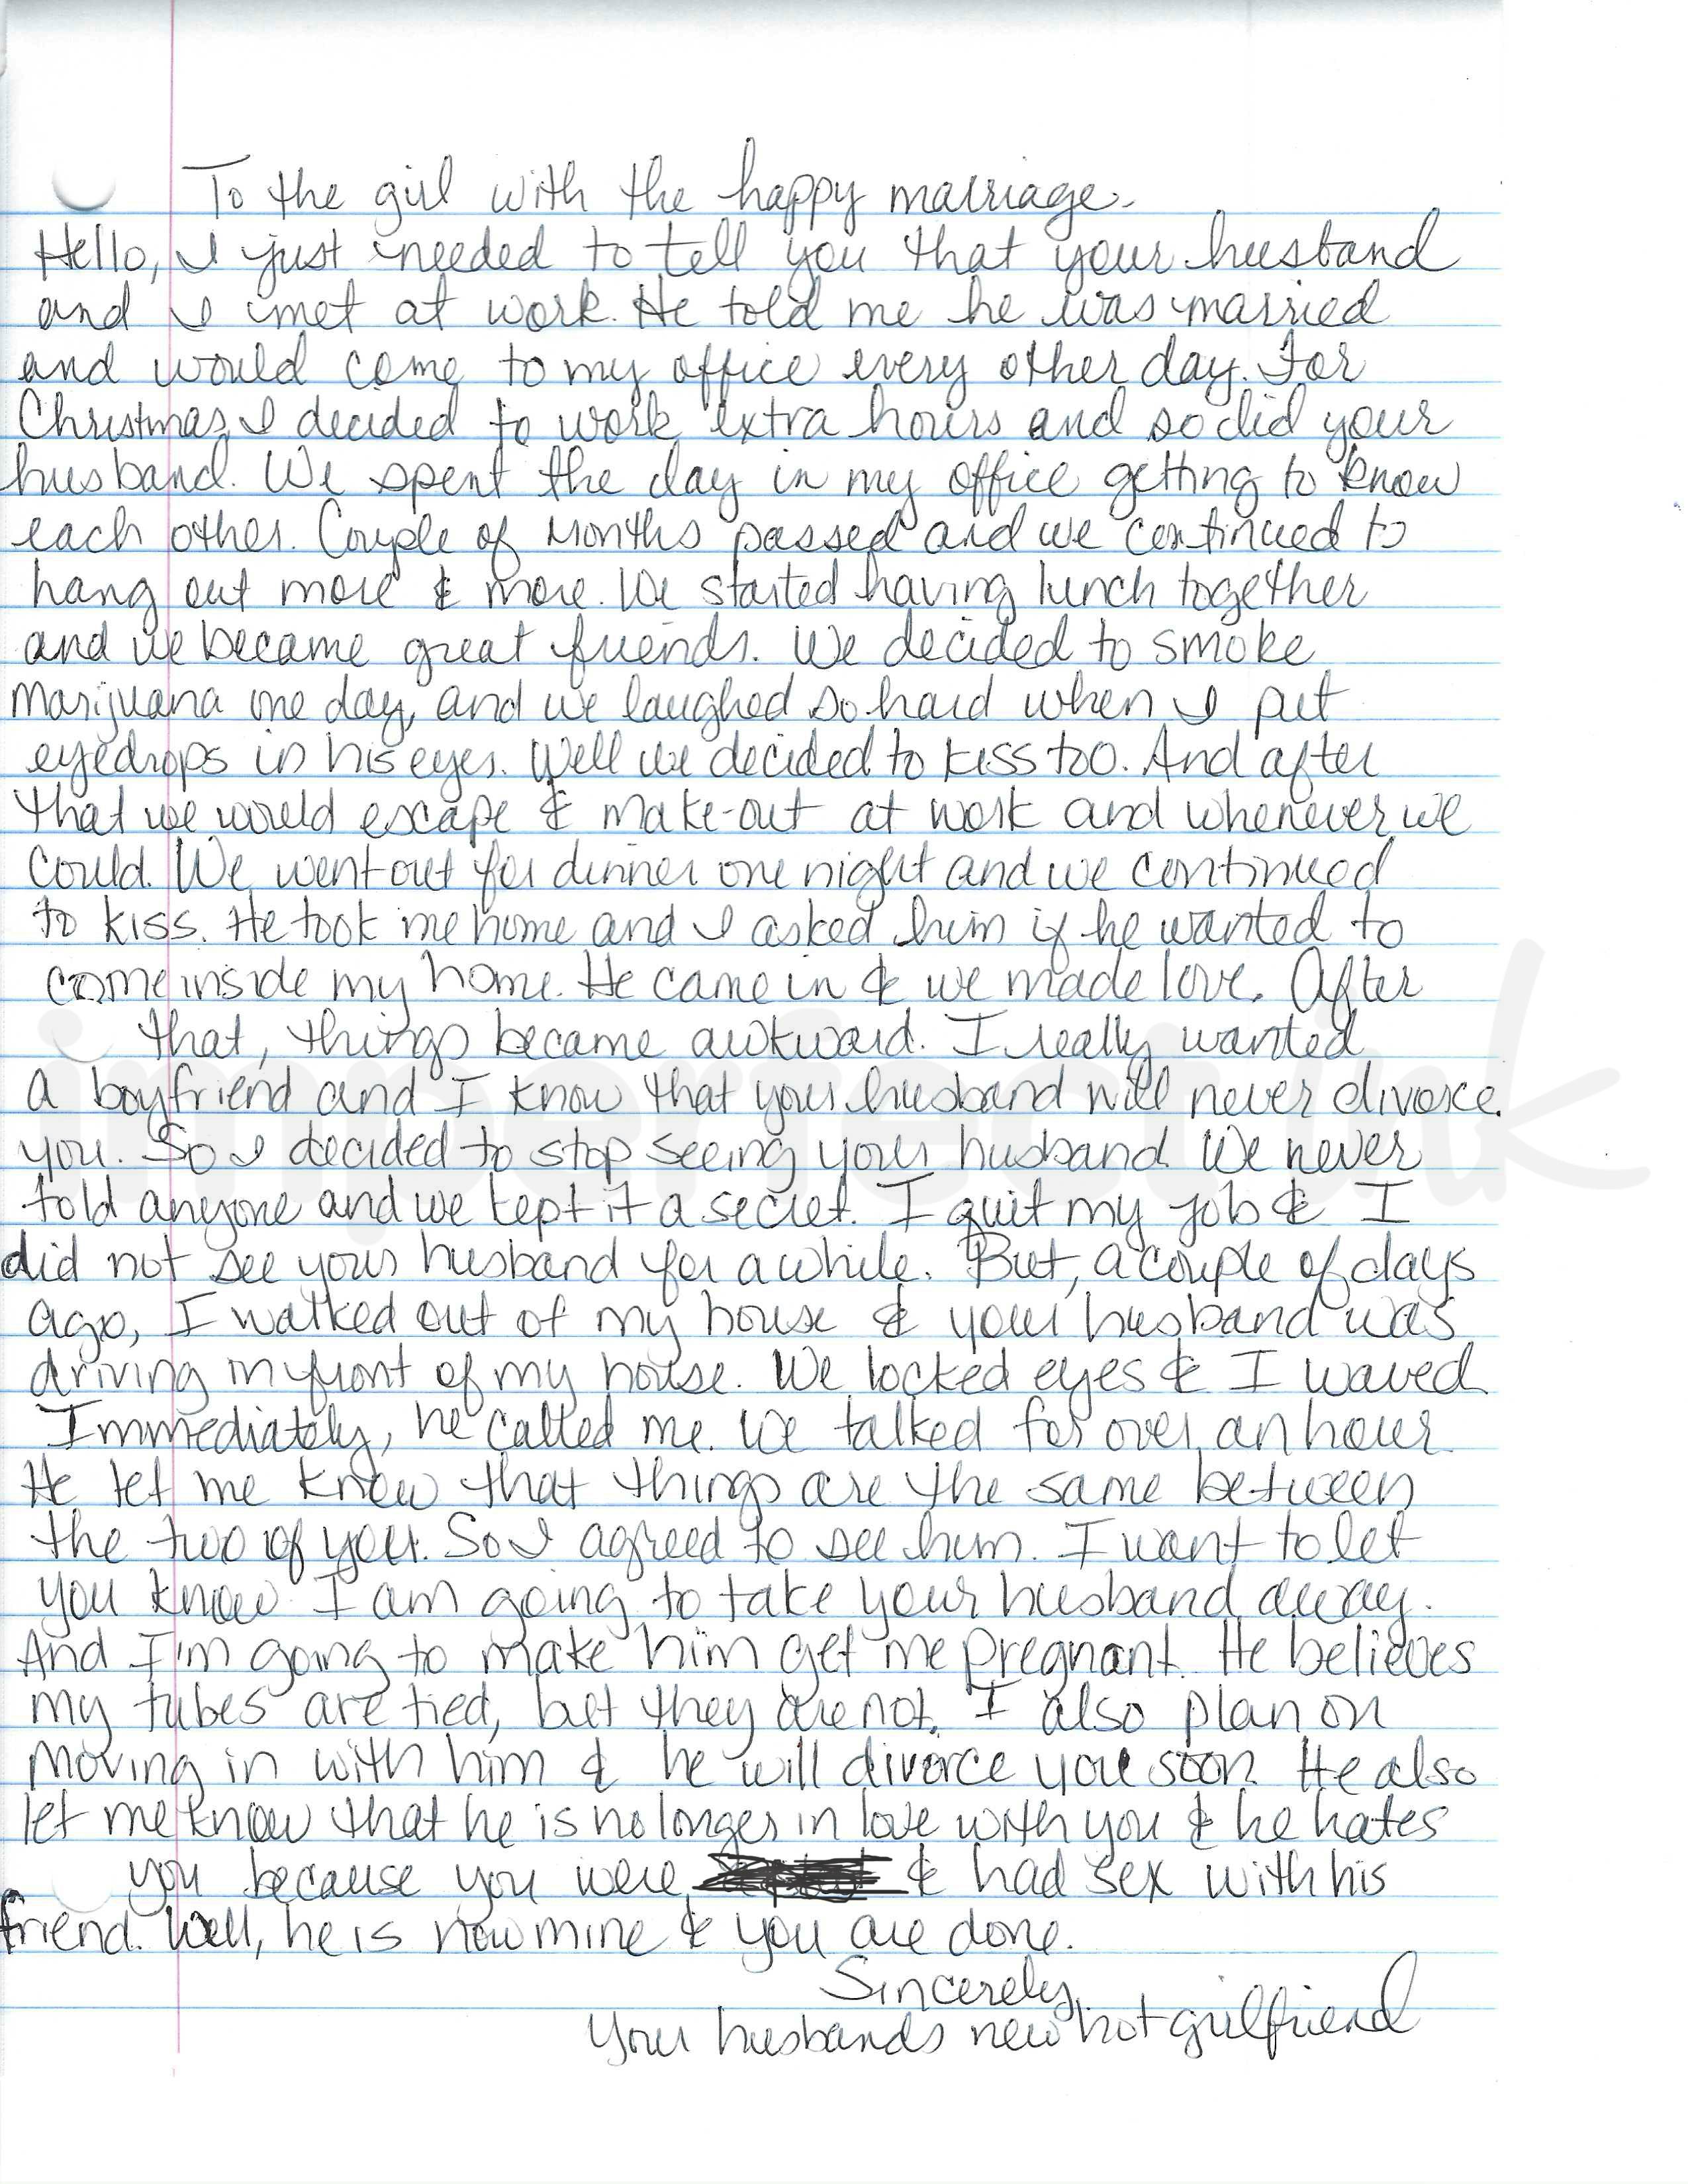 To the girl with the happy marriage.
Hello, I just needed to tell you that your husband
and I met at work. He told me he was married
and would come to my office every other day. For
Christmas, I decided to work extra hours and so did your
husband. We spent the day in my office getting to know
each other. Couple of months passed and we continued to
hang out more & more. We started having lunch together
and we became great friends. We decided to smoke
marijuana one day, and we laughed so hard when I put
eyedrops in his eyes. Well we decided to kiss too. And after
that we would escape & make-out at work and whenever we
could. We went out for dinner one night and we continued
to kiss. He took me home and I asked him if he wanted to
come inside my home. He came in & we made love. After
that, things became awkward. I really wanted
a boyfriend and I know that your husband will never divorce
you. So I decided to stop seeing your husband. We never
told anyone and we kept it a secret. I quit my job & I
did not see your husband for awhile. But, a couple of days
ago, I walked out of my house & your husband was
driving in front of my house. We locked eyes & I waved
Immediately, he called me. We talked for over an hour
He let me know that things are the same between
the two of you. So I agreed to see him. I want to let
you know I am going to take your husband away.
And I'm going to make him get me pregnant. He believes
my tubes are tied, but they are not. I also plan on
moving in with him & he will divorce you soon. He also
let me know that he is no longer in love with you & he hates
you because you were & had sex with his
friend. Well, he is now mine & you are done.
Sincerely,
Your husbands new hot girlfriend